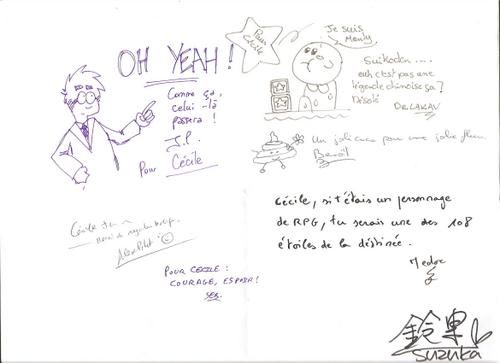 OH YEAH !
Comme ça,
celui-là
passera !
J.P.
Pour Cécile
Pour
Cécile
Je suis
Suikoden ....
euh c'est pas une
légende chinoise ça ?
Désolé
Un joli pour une jolie fleur.
Benoît
Cécile, si t'étais un personnage
de RPG, tu serais une des 108
étoiles de la destinée.
Medoc
Cécile
POUR CECILE :
COURAGE, ESPOIR !
鈴果
suzuka